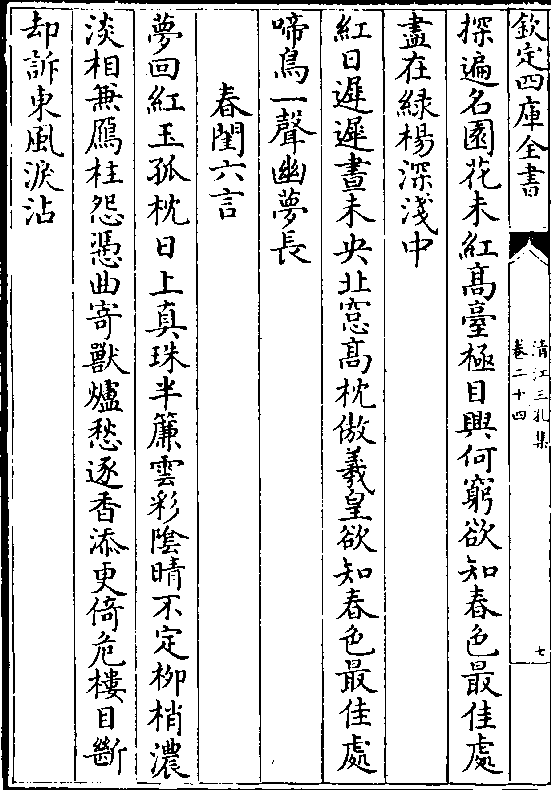 欽定四庫全書
清江三孔集
卷二十四
七
探遍名園花未紅髙臺極目興何窮欲知春色最佳處
盡在緑楊深淺中
紅日遲遲晝未央北窓髙枕傲羲皇欲知春色最佳處
啼鳥一聲幽夢長
春閨六言
夢回紅玉孤枕日上真珠半簾雲彩隂晴不定柳梢濃
淡相兼鴈柱怨憑曲寄獸爐愁逐香添更倚危樓目斷
却訴東風淚沾